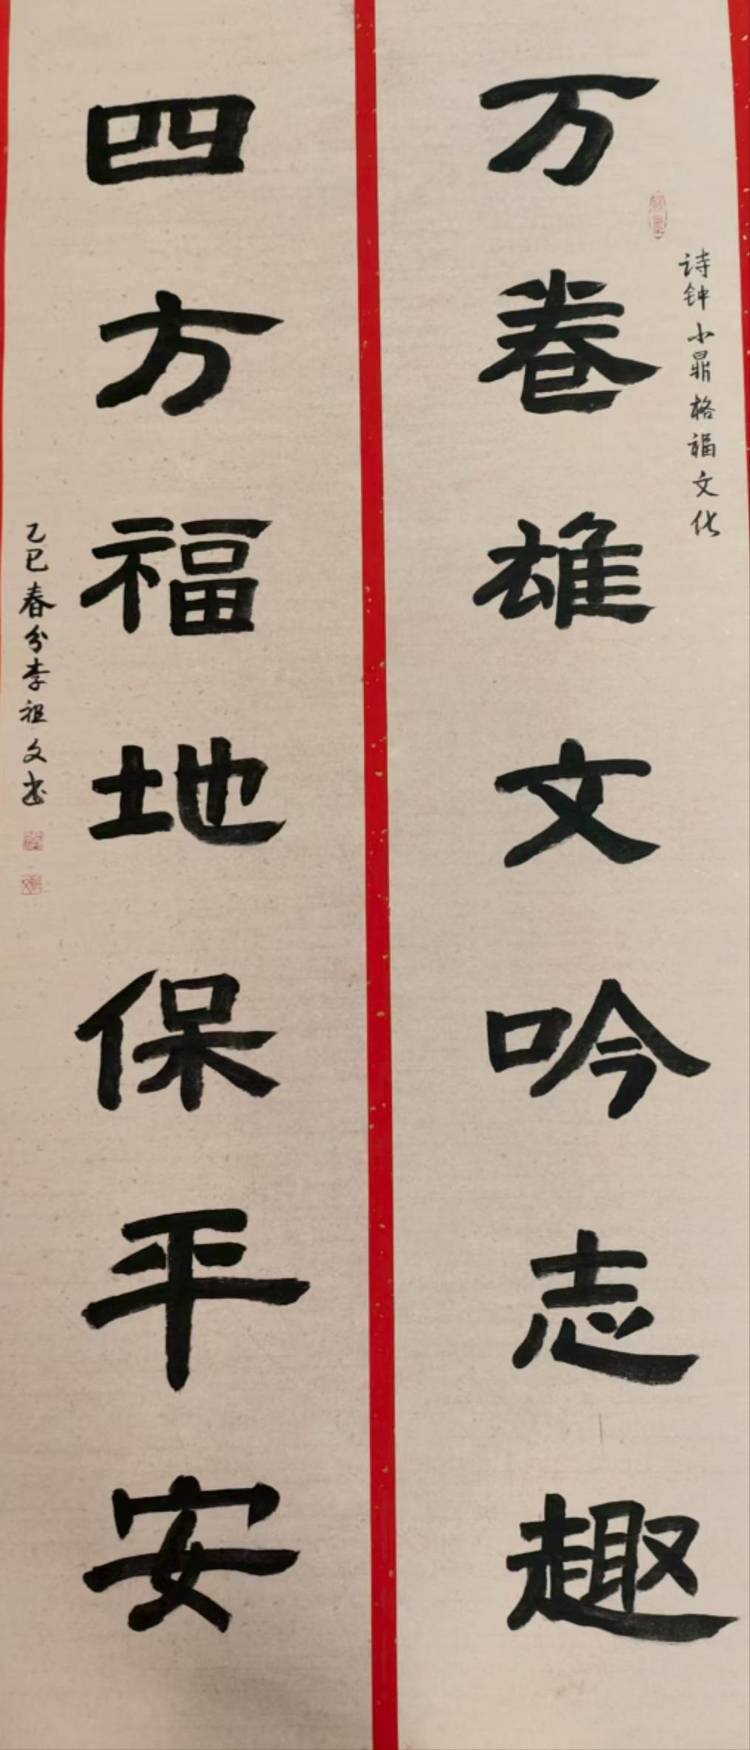 诗钟小鼎格福文化
万卷雄文吟志趣
四方福地保平安
乙巳春分李祖文书